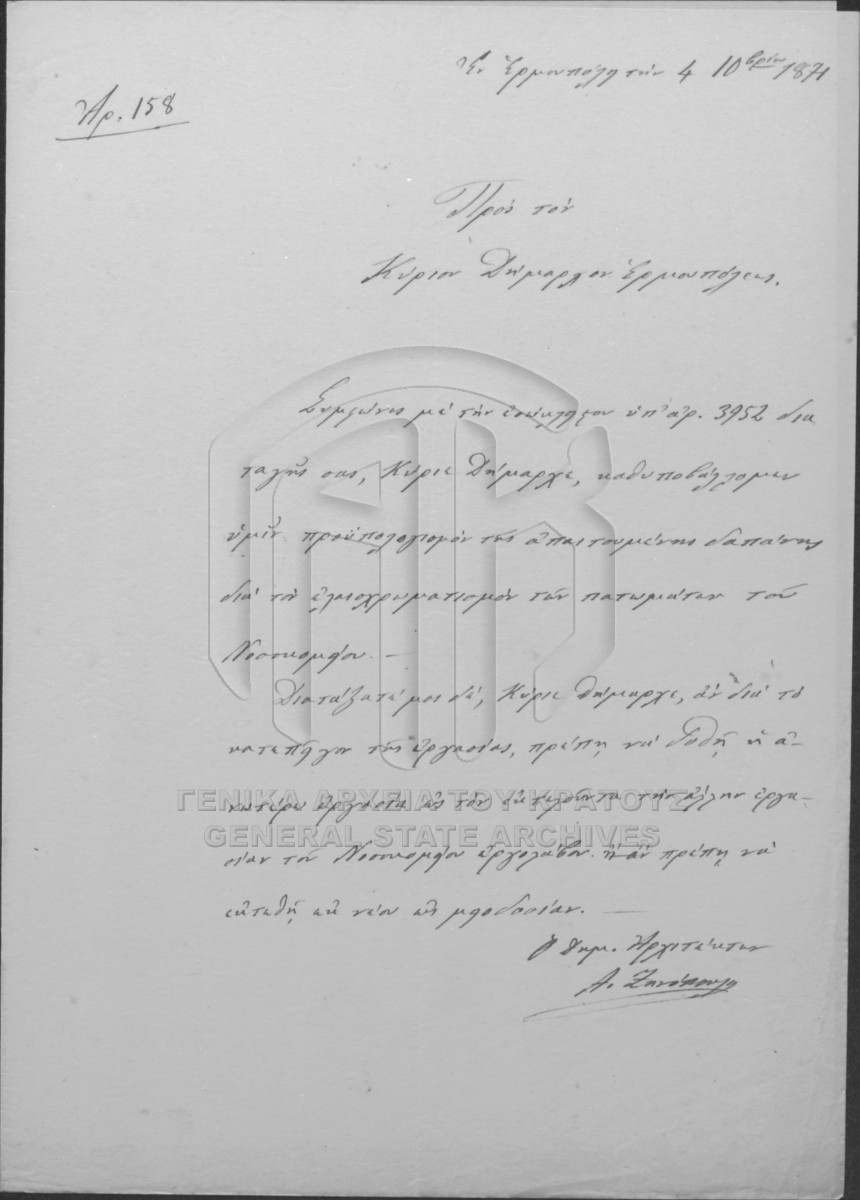 Ἐν Ἑρμουπόλει τὴν 4 10βρίου 1871
Ἀρ. 158
Πρὸς τὸν
Κύριον Δήμαρχον Ἑρμουπόλεως.
Συμφώνως μὲ τὴν ἐσώκλειστον ὑπ' ἀρ. 3952 δια
ταγήν σας, Κύριε Δήμαρχε, καθυποβάλλομεν
ὑμῖν προϋπολογισμὸν τῆς ἀπαιτουμένης δαπάνης
διὰ τὸν ἐλαιοχρωματισμὸν τῶν πατωμάτων τοῦ
Νοσοκομείου. —
Διατάξατέ μοι δέ, Κύριε Δήμαρχε, ἂν διὰ τὸ
κατεπεῖγον τῆς ἐργασίας, πρέπῃ νὰ δοθῇ ἡ ἀ-
νωτέρω ἐργασία εἰς τὸν ἐκτελοῦντα τὴν ἄλλην ἐργα-
σίαν τοῦ Νοσοκομείου ἐργολάβον ἢ ἂν πρέπῃ νὰ
ἐκτεθῇ ἐκ νέου εἰς μειοδοσίαν. —
Ὁ Δημ. Ἀρχιτέκτων
ΓΕΝΙΚΑ ΑΡΧΕΙΑ ΤΟΥ ΚΡΑΤΟΥΣ
GENERAL STATE ARCHIVES